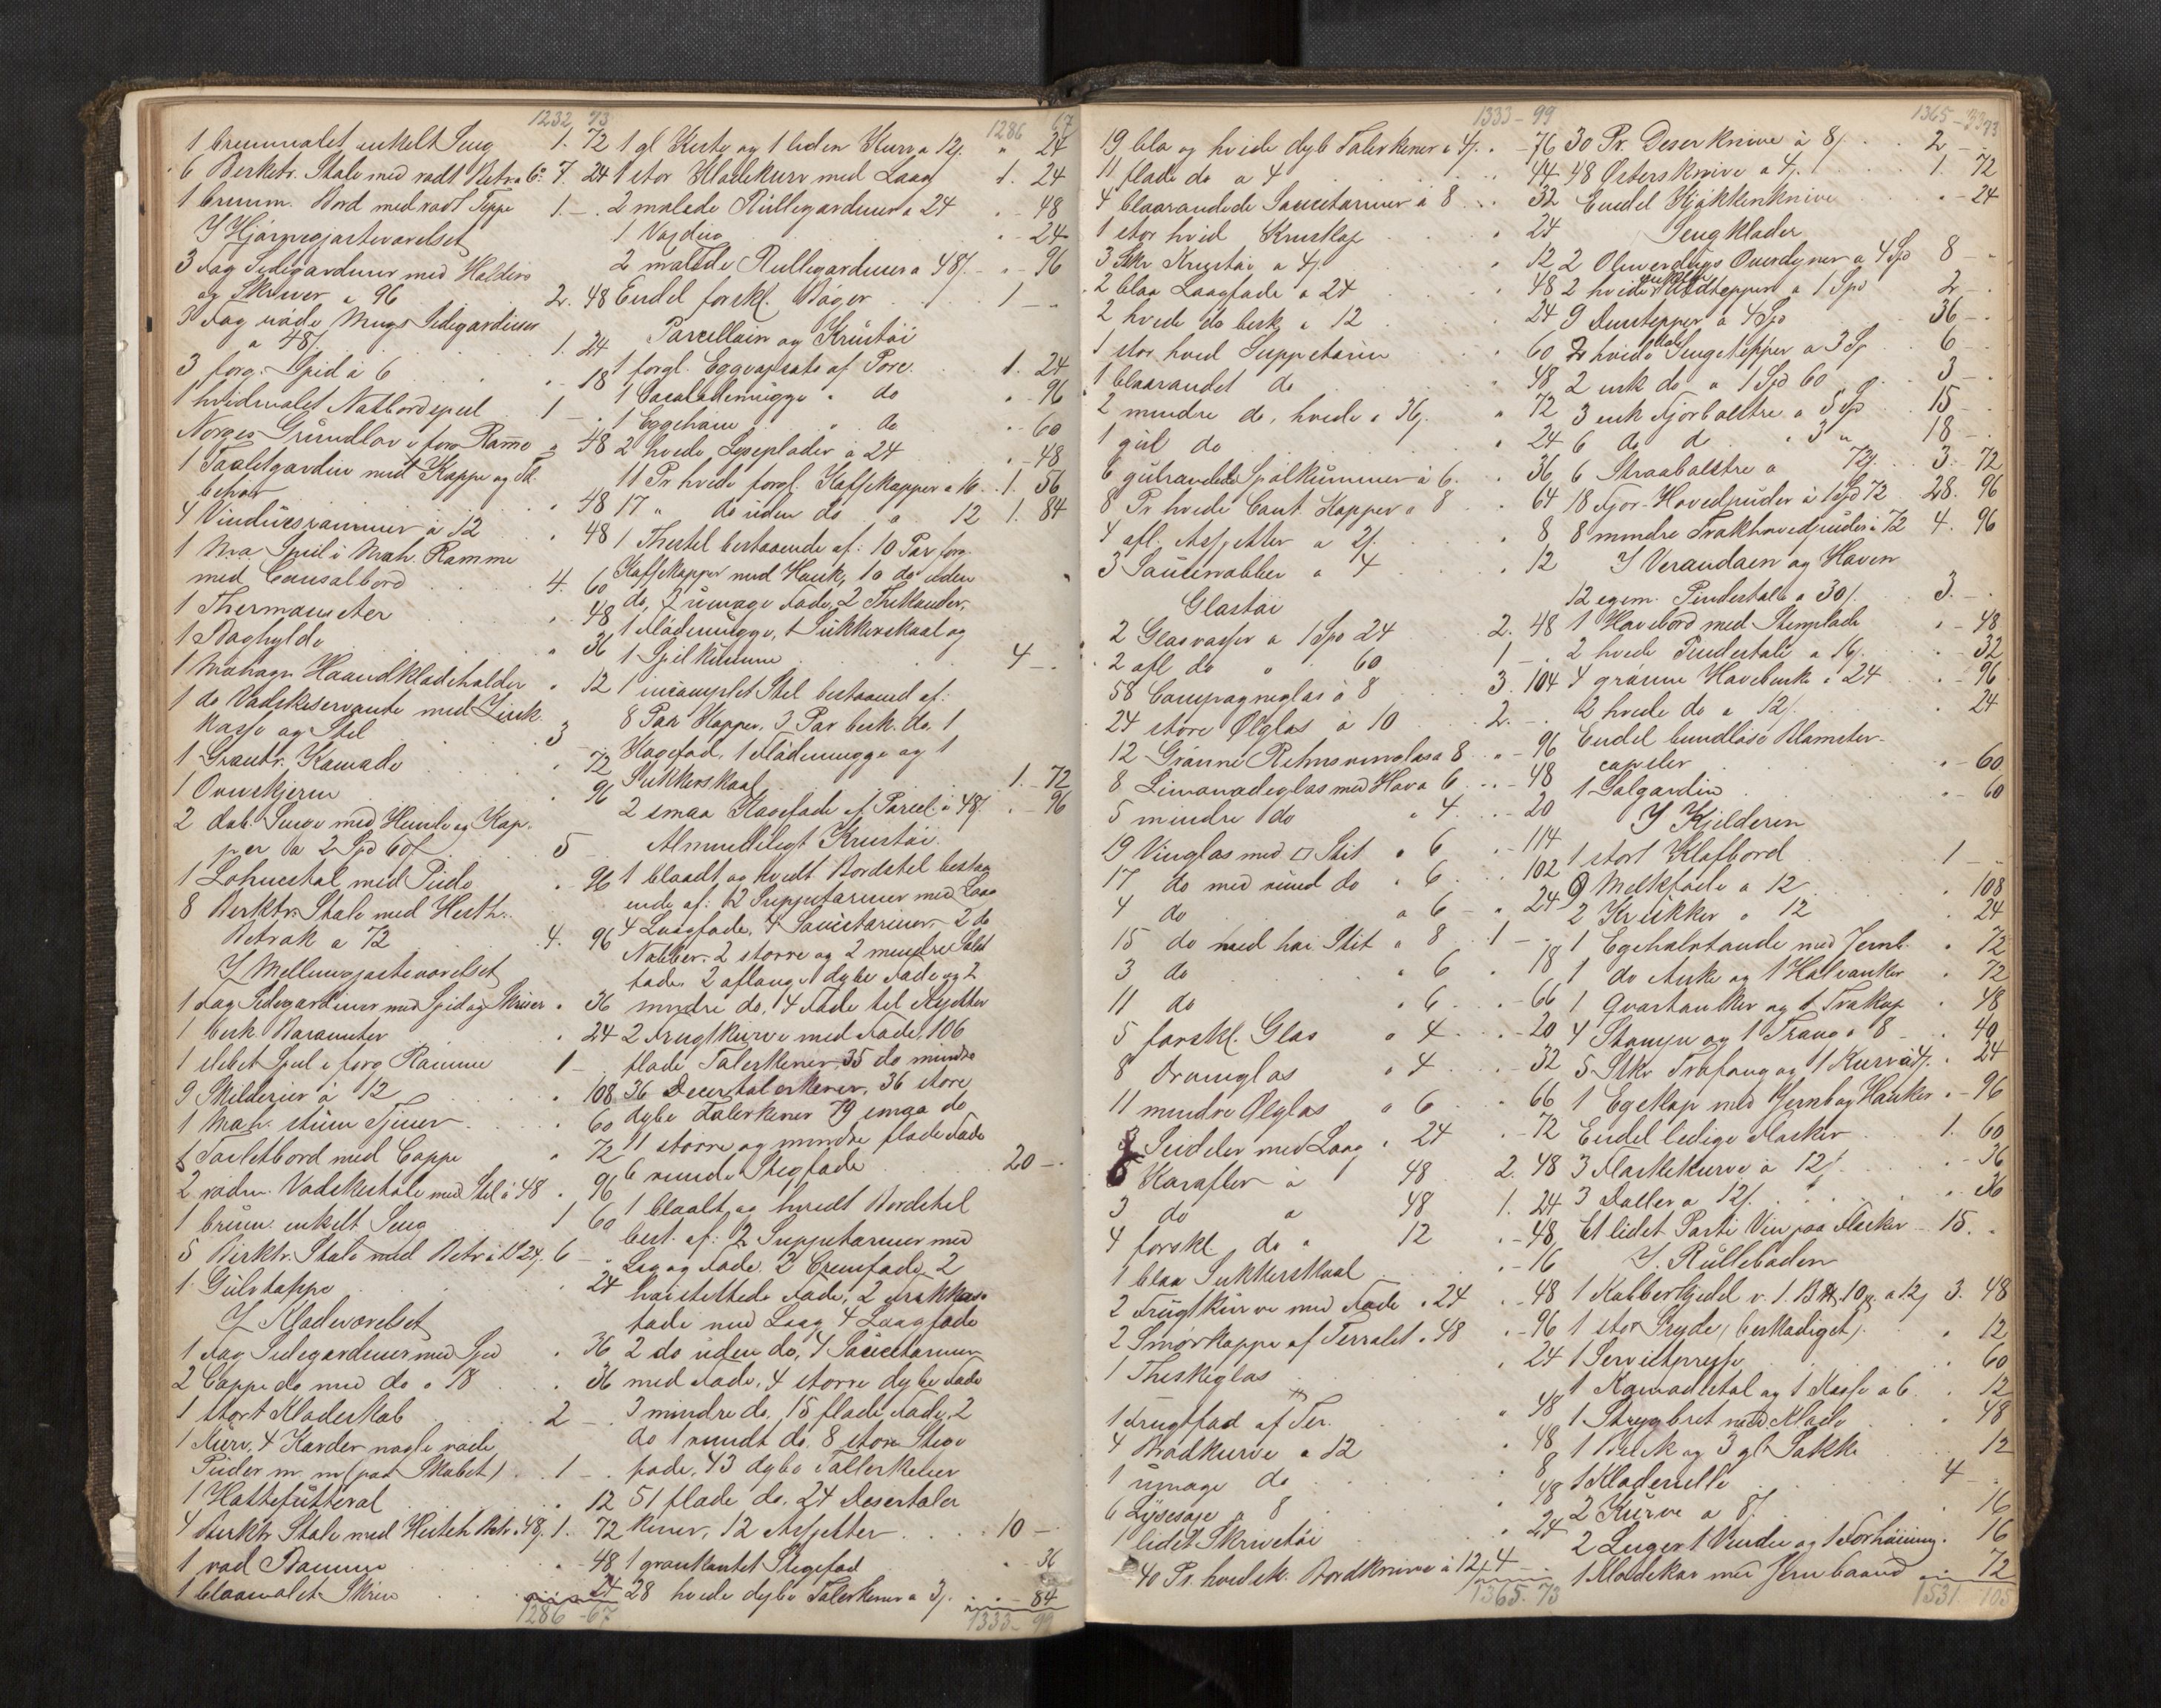 1232 73
1 brunmalet enkelt Seng 1. 72
6 Birketr. Stole med rødt Betr a 6: 7. 24
1 brunm. Bord med rødt Teppe 1. -
I Hjørnegjæsteværelset
3 Fag Sidegardiner med Holdere
og Skruer a 96 2. 48
3 Fag røde Mugs Sidegardiner
a 48/ 1. 24
3 forg. Spid à 6 " 18
1 hvidmalet Natbord speil 1 -
Norges Grundlov i forg Ramme " 48
1 Toiletgardin med Kappe og Til
behør " 48
4 Vinduesrammer à 12 " 48
1 Mra Speil i Mah. Ramme
med Consolbord 4. 60
1 Thermometer " 48
1 Boghylde " 36
1 Mahogn Haandklædeholder " 12
1 do Vadskeservante med Zink
kasse og Stel 3
1 Grantr. Komode " 72
1 Ovnskjerm " 96
2 dob. Senge med Himle og Kap-
per a 2 Spd 60/ 5 -
1 Lohnestol med Pude " 96
8 Birktr. Stole med Hesteh.
Betræk a 72 4. 96
I Mellemgjæsteværelset
1 Fag Sidegardiner med Spid og Skruer " 36
1 besk. Barometer " 24
1 slebet Speil i forg Ramme 1 -
9 Skilderier à 12 " 108
1 Mah. stum Tjener " 60
1 Toiletbord med Cappe " 72
2 rødm. Vadskestole med Stel à 48 " 96
1 brunm. enkelt Seng 1 60
5 Birktr. Stole med Betr à 1 24/. 6 -
1 Gulvtæppe " 24
I Klædeværelset
1 Fag Sidegardiner med Spid " 36
2 Cappe do med do a 18 " 36
1 stort Klædeskab 2 -
1 Kurv, 4 Karder nogle røde
Puder m. m (paa Skabet) 1 -
1 Hattefutteral " 12
4 Birktr Stole med Hesteh Betr. 48/. 1. 72
1 rød Ramme " 48
1 blaamalet Skrin " 24
1286 - 67
1286 67
1 gl Kiste og 1 liden Kurv a 12/. " 24
1 stor Klædekurv med Laag 1. 24
2 malede Rullegardiner a 24 " 48
1 Voxdug " 24
2 malede Rullegardiner a 48/ " 96
Endel forskl. Bøger 1 -
Porcellain og Krustøi
1 forgl. Eggopsats af Porc. 1. 24
1 Chocolademugge " do " 96
1 Eggehøne " do " 60
2 hvide Lyseplader à 24 " 48
11 Pr hvide forgl. Kaffekopper a 16 1. 56
17 " do uden do a 12 1. 84
1 Thestel bestaaende af: 10 Par forg.
Kaffekopper med Hank, 10 do uden
do, 2 umage Fade, 2 Thekander,
1 Flødemugge, 1 Sukkerskaal og
1 Spilkumme 4 -
1 incomplet Stel bestaaend af:
8 Par Kopper, 3 Par besk. do, 1
Kagefad, 1 Flødemugge og 1
Sukkerskaal 1. 72
2 smaa Kagefade af Porcel. à 48/ " 96
Almindeligt Krustøi
1 blaadt og hvidt Bordstel bestaa
ende af: 12 Suppeterriner med Laag
4 Laagfade, 4 Sauceterriner, 2 do
Nabber, 2 større og 2 mindre Salat
fade, 2 aflange dybe Fade og 2
mindre do, 14 Fade til Kjødder
2 Frugtkurve med Fade, 106
flade Talerkener 35 do mindre
36 Deserttalerkener, 36 store
dybe Talerkener 79 smaa do
11 større og mindre flade Fade
6 runde Stegfade 20 -
1 blaalt og hvidt Bordstel
best. af: 2 Suppeterriner med
Laag og Fade, 2 Cremfade, 2
høistettede Fade, 2 Frikkas-
fade med Laag 4 Laagfade
2 do uden do, 4 Sauceterriner
med Fade, 4 større dybe Fade
3 mindre do, 15 flade Fade, 2
do 1 rundt do. 8 store Stege
fade, 43 dybe Tallerkener
51 flade do, 24 Deserttaler
kener, 12 Assjetter 10 -
1 grønkantet Stegefad " 36
28 hvide dybe Talerkener a 3/. " 84
1333 - 99
1333 - 99
19 bla og hvide dyb Talerkener a 4/. " 76
11 flade do a 4 " 44
4 blaarandede Sauceterriner à 8 " 32
1 stor hvid Kruskop " 24
3 Stkr Krustøi a 4/. " 12
2 blaa Laagfade a 24 " 48
2 hvide do besk. a 12 " 24
1 stor hvid Suppeterin " 60
1 blaarandet do " 48
2 mindre do, hvide a 36/. " 72
1 gul do " 24
6 gulrandede Spølkummer à 6 " 36
8 Pr hvide Cant. Kopper a 8 " 64
4 afl. Assjetter a 2/. " 8
3 Saucenabber a 4 " 12
Glastøi
2 Glasvasser a 1 Spd 24 2. 48
2 afl do " 60 1 -
58 Campagneglas à 8 3. 104
24 store Ølglas à 10 2. -
12 Grønne Rhinsvinglas a 8 " 96
8 Limonadeglas med Hov a 6 " 48
5 mindre do " 4 " 20
19 Vinglas med □ Stit a 6 " 114
17 do med rund do a 6 " 102
4 do a 6 " 24
15 do med høi Stit a 8 1 -
3 do " 6 " 18
11 do " 6 " 66
5 forskl. Glas a 4 " 20
8 Dramglas a 4 " 32
11 mindre Ølglas a 6 " 66
3 Seideler med Laag a 24 " 72
5 Karafler à 48 2. 48
3 do a 48 1. 24
4 forskl. do a 12 " 48
1 blaa Sukkerskaal " 16
2 Frugtkurve med Fade a 24 " 48
2 Smørkoppe af Terralit a 48 " 96
1 Theskeglas " 24
1 Frugtfad af Ter. " 48
4 Brødkurve a 12 " 48
1 umage do " 8
6 Lysesaxe a 8 " 48
1 lidet Skrivetøi " 24
40 Pr. hvidsk. Bordknive à 12/. 4 -
1365. 73
1365 - 73
30 Pr. Deserknive à 8/. 2 -
48 Østersknive a 4/. 1. 72
Endel Kjøkkenknive " 24
Sengklæder
2 Olmerdugs Overdyner a 4 Spd 8 -
2 hvide enkelte Uldtepper a 1 Spd 2 -
9 Duntepper a 4 Spd 36 -
2 hvide dob Sengetepper a 3 Sp 6 -
2 enk do a 1 Spd 60 3 -
3 enk Fjørbolstre a 5 Sp 15 -
6 do do " 3 " 18 -
6 Straabolstre a 72/. 3. 72
18 Fjør-Hovedpuder à 1 Spd 72 28. 96
8 mindre Trækhovedpuder à 72 4. 96
I Verandaen og Haven
12 egem. Pindestole a 30/. 3. -
1 Havebord med Stenplade " 48
2 hvide Pindestole a 16/. " 32
4 grønne Havebenke à 24 " 96
2 hvide do a 12/. " 24
Endel bundløse Blomster-
capsler " 60
1 Solgardin " 60
I Kjelderen
1 stort Klafbord 1 -
9 Melkefade a 12 " 108
2 Krukker a 12 " 24
1 Egehalvtønde med Jernb. " 72
1 do Anke og 1 Halvanker " 72
1 Qvartanker og 1 Trækop " 48
4 Stamper og 1 Traug a 8 " 40
5 Stkr Træfang og 1 Kurv à 4/. " 24
1 Egekop med Jernb og Hanker " 96
Endel ledige Flasker 1. 60
3 Flaskekurve à 12/. " 36
3 Baller a 12/. " 36
Et lidet Parti Vin paa Flasker 15. -
I Rulleboden
1 Kobberkjedel v. 1. B℔ 10 ℔. a 12/ 3. 48
1 stor Gryde (beskadiget) " 12
1 Servietpresse " 60
1 Komodestol og 1 Kasse a 6 " 12
1 Strygbret med Klæde " 48
1 Bænk og 3 gl Sække " 12
1 Klæderulle 4 -
2 Kurve a 8/ " 16
2 Luger 1 Vindu og 1 Forhøining. " 16
1 Klædekar med Jernbaand " 72
1531. 105